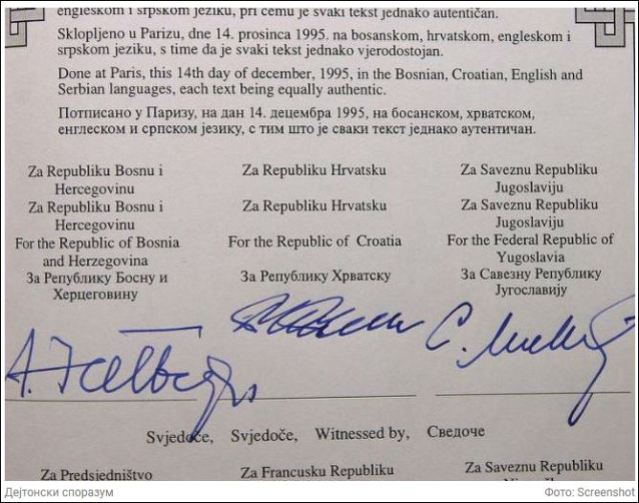 engleskom i srpskom jeziku, pri čemu je svaki tekst jednako autentičan.
Sklopljeno u Parizu, dne 14. prosinca 1995. na bosanskom, hrvatskom, engleskom i
srpskom jeziku, s time da je svaki tekst jednako vjerodostojan.
Done at Paris, this 14th day of december, 1995, in the Bosnian, Croatian, English and
Serbian languages, each text being equally authentic.
Потписано у Паризу, на дан 14. децембра 1995, на босанском, хрватском,
енглеском и српском језику, с тим што је сваки текст једнако аутентичан.
Za Republiku Bosnu i
Hercegovinu
Za Republiku Bosnu i
Hercegovinu
For the Republic of Bosnia
and Herzegovina
За Републику Босну и
Херцеговину
Za Republiku Hrvatsku
Za Republiku Hrvatsku
For the Republic of Croatia
За Републику Хрватску
Za Saveznu Republiku
Jugoslaviju
Za Saveznu Republiku
Jugoslaviju
For the Federal Republic of
Yugoslavia
За Савезну Републику
Југославију
Svjedoče, Svjedoče, Witnessed by, Сведоче
Za Predsjedništvo
Za Francusku Republiku
Za Saveznu Republiku
Дејтонски споразум
Фото: Screenshot